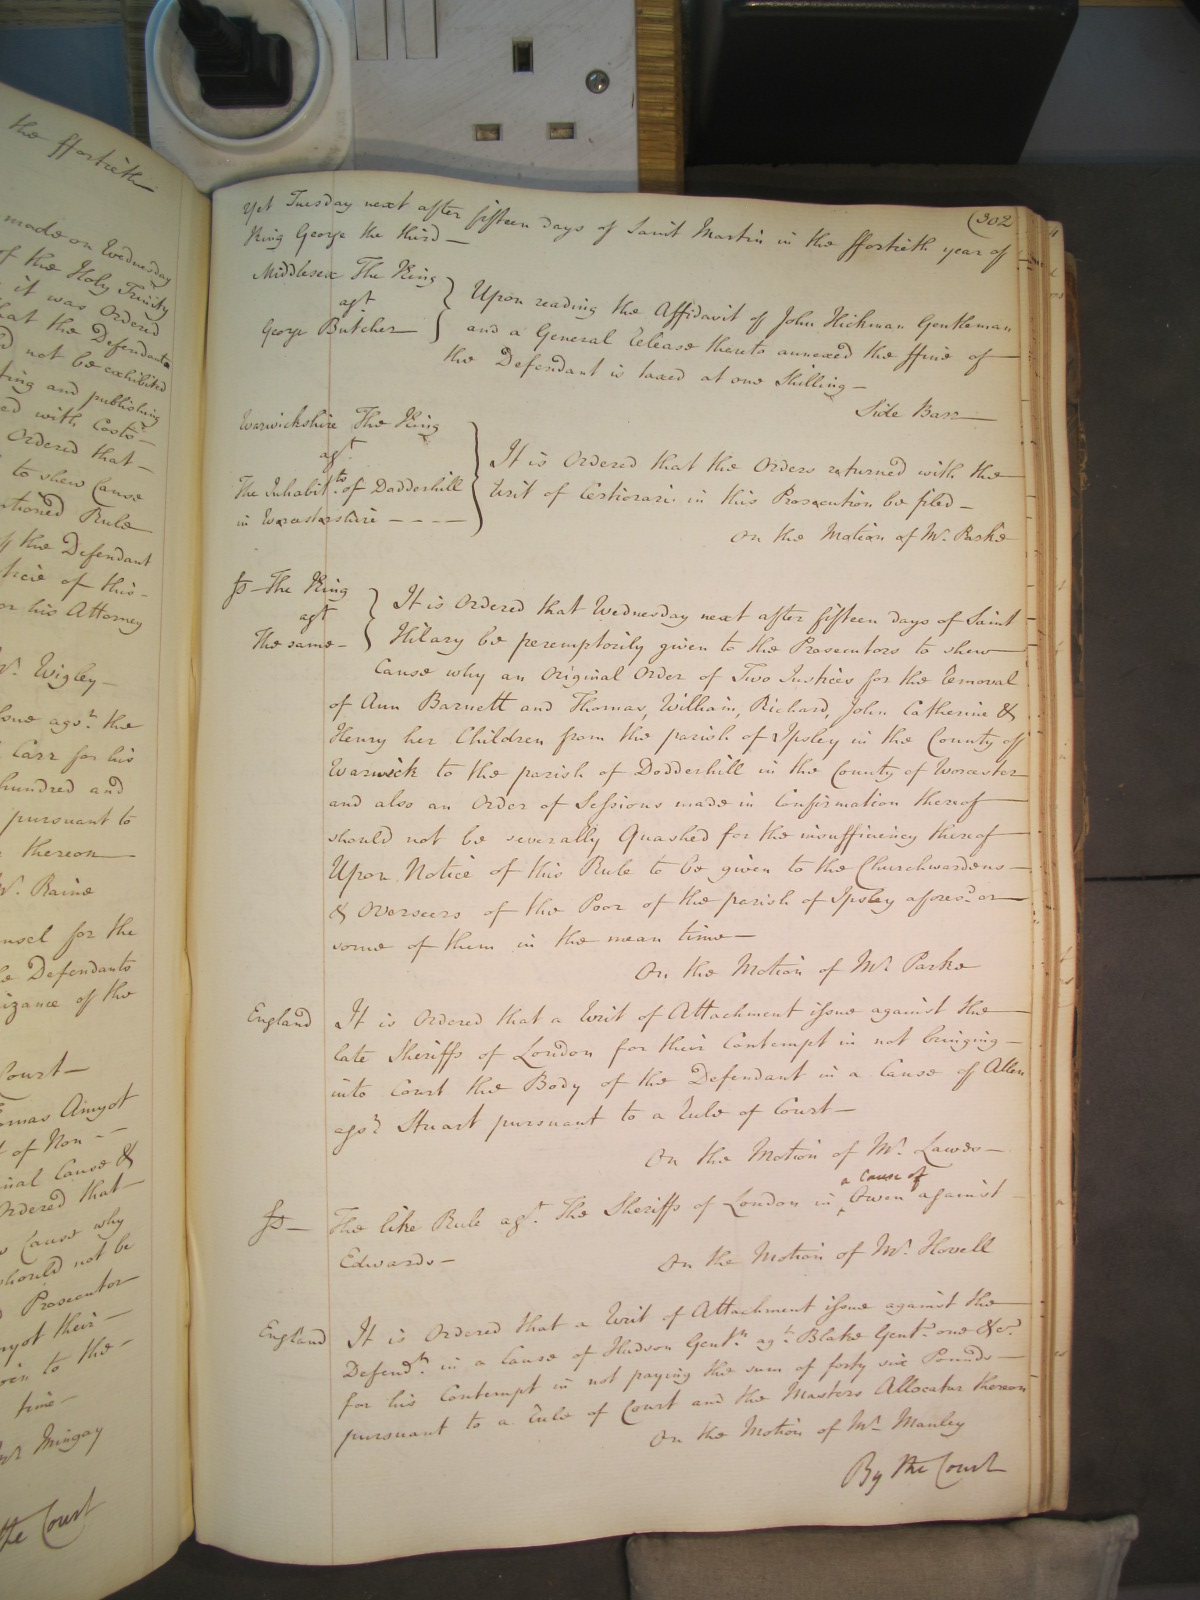 the ffortieth
made on Wednesday
of the Holy Trinity
it was Ordered
that the Defendants
not be exhibited
ting and publishing
ed with Costs
Ordered that
to shew Cause
tioned Rule
the Defendant
of this
or his Attorney
Mr. Wigley
issue agst. the
Carr for his
hundred and
pursuant to
thereon
Mr. Raine
nsel for the
Defendants
izance of the
Court
omas Amyot
of Non
inal Cause &
Ordered that
Cause why
should not be
Prosecutor
myot their
given to the
time
Mr Mingay
the Court
(302
Yet Tuesday next after fifteen days of Saint Martin in the ffortieth year of
King George the third
Middlesex The King
agt
George Butcher
Upon reading the Affidavit of John Hickman Gentleman
and a General Release thereto annexed the ffine of
the Defendant is taxed at one Shilling
Side Barr
Warwickshire The King
agt.
The Inhabitts. of Dodderhill
in Worcestershire
It is Ordered that the Orders returned with the
Writ of Certiorari in this Prosecution be filed
On the Motion of Mr. Parke
Ss The King
agt
The same
It is Ordered that Wednesday next after fifteen days of Saint
Hilary be peremptorily given to the Prosecutors to shew
Cause why an Original Order of Two Justices for the Removal
of Ann Barnett and Thomas, William, Richard, John Catherine &
Henry her Children from the parish of Ipsley in the County of
Warwick to the parish of Dodderhill in the County of Worcester
and also an Order of Sessions made in Confirmation thereof
should not be severally Quashed for the insufficiency thereof
Upon Notice of this Rule to be given to the Churchwardens
& Overseers of the Poor of the parish of Ipsley aforesd. or
some of them in the mean time
On the Motion of Mr. Parke
England It is Ordered that a Writ of Attachment issue against the
late Sheriffs of London for their Contempt in not bringing
into Court the Body of the Defendant in a Cause of Allen
agst Stuart pursuant to a Rule of Court
On the Motion of Mr. Lawes
a Cause of
Ss The like Rule agt. The Sheriffs of London in Owen against
Edwards
On the Motion of Mr. Hovell
England It is Ordered that a Writ of Attachment issue against the
Defendt. in a Cause of Hudson Gent. agt. Blake Gent. one &c.
for his Contempt in not paying the sum of forty six Pounds
pursuant to a Rule of Court and the Masters Allocatur thereon
On the Motion of Mr. Manley
By the Court